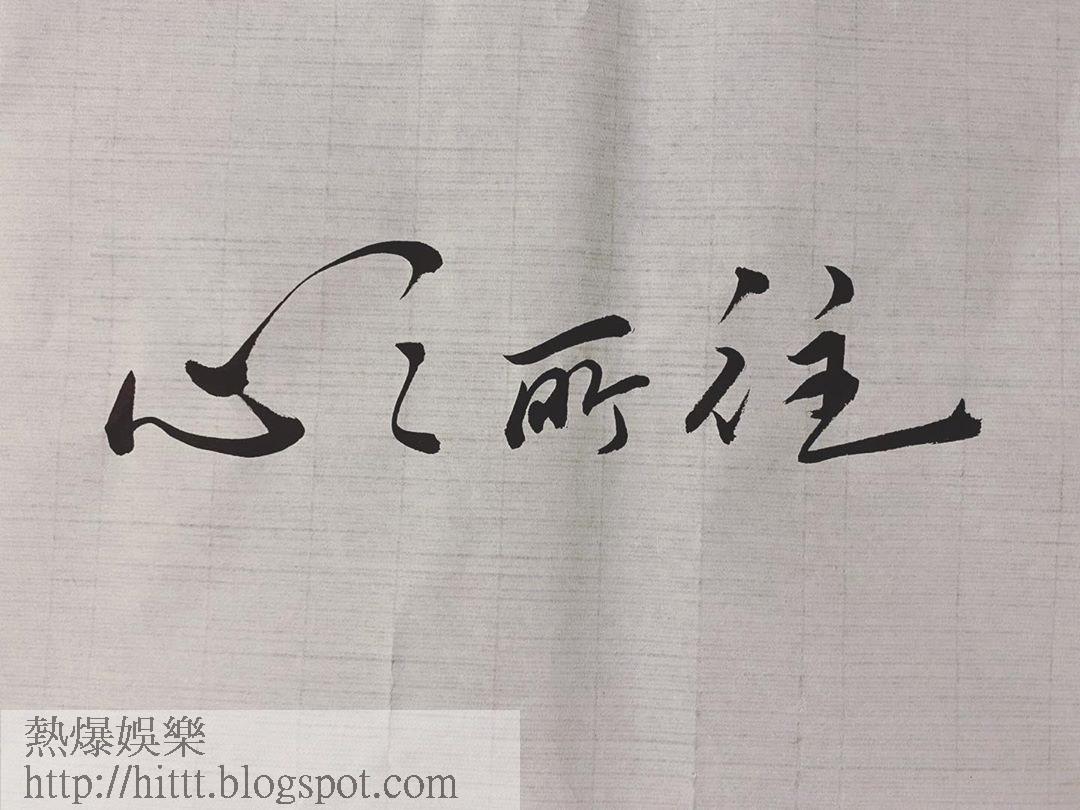 心之所往
熱爆娛樂
http://hittt.blogspot.com